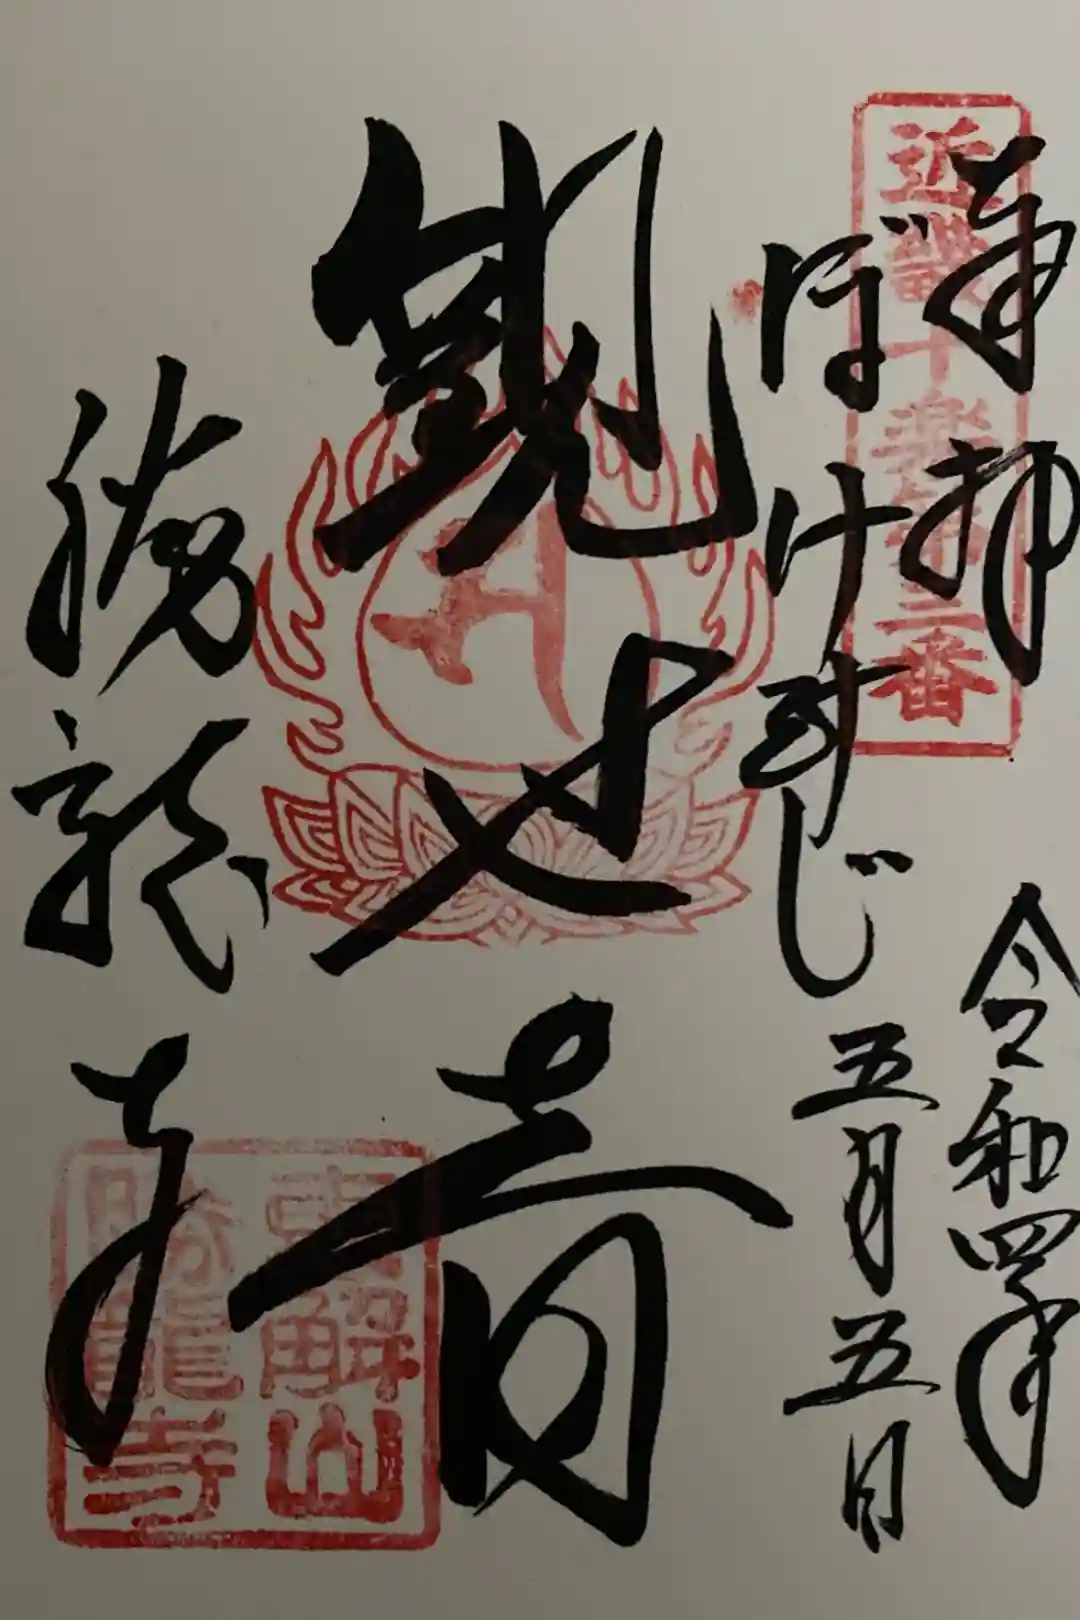 奉拝
近畿十楽第三番
令和四年
ぼけ封じ
五月五日
観世音
勝龍寺
恵解山
勝龍寺